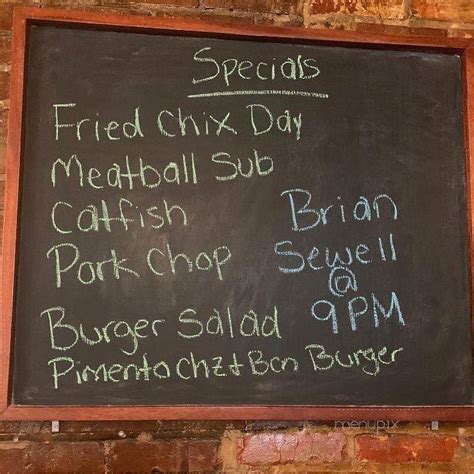 Specials
Fried Chix Day
Meatball Sub
Catfish
Pork Chop
Brian
Sewell
@
9PM
Burger Salad
Pimento Chz + Bcn Burger
menupix